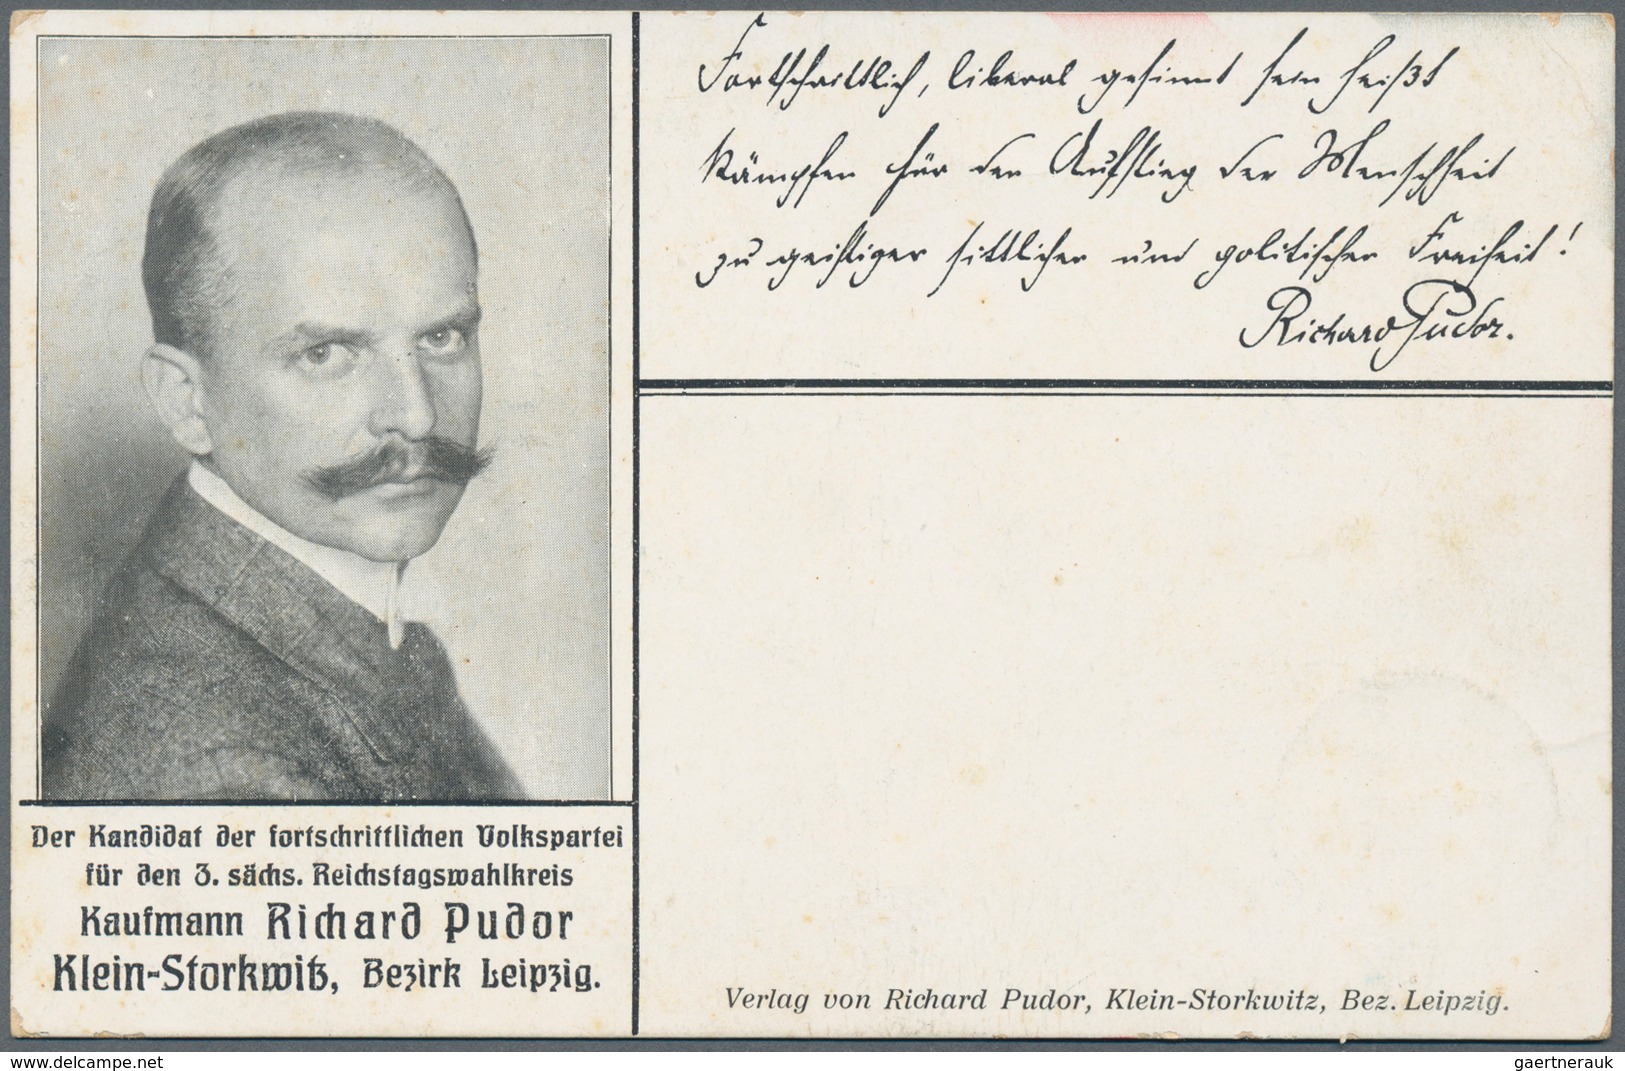 Fortschrittlich, liberal gesinnt sein heißt
kämpfen für den Aufstieg der Menschheit
zu geistiger sittlicher und politischer Freiheit!
Richard Pudor.
Der Kandidat der fortschrittlichen Volkspartei
für den 3. sächs. Reichstagswahlkreis
Kaufmann Richard Pudor
Klein-Storkwitz, Bezirk Leipzig.
Verlag von Richard Pudor, Klein-Storkwitz, Bez. Leipzig.
www.oldthing.net
gaertnerauk